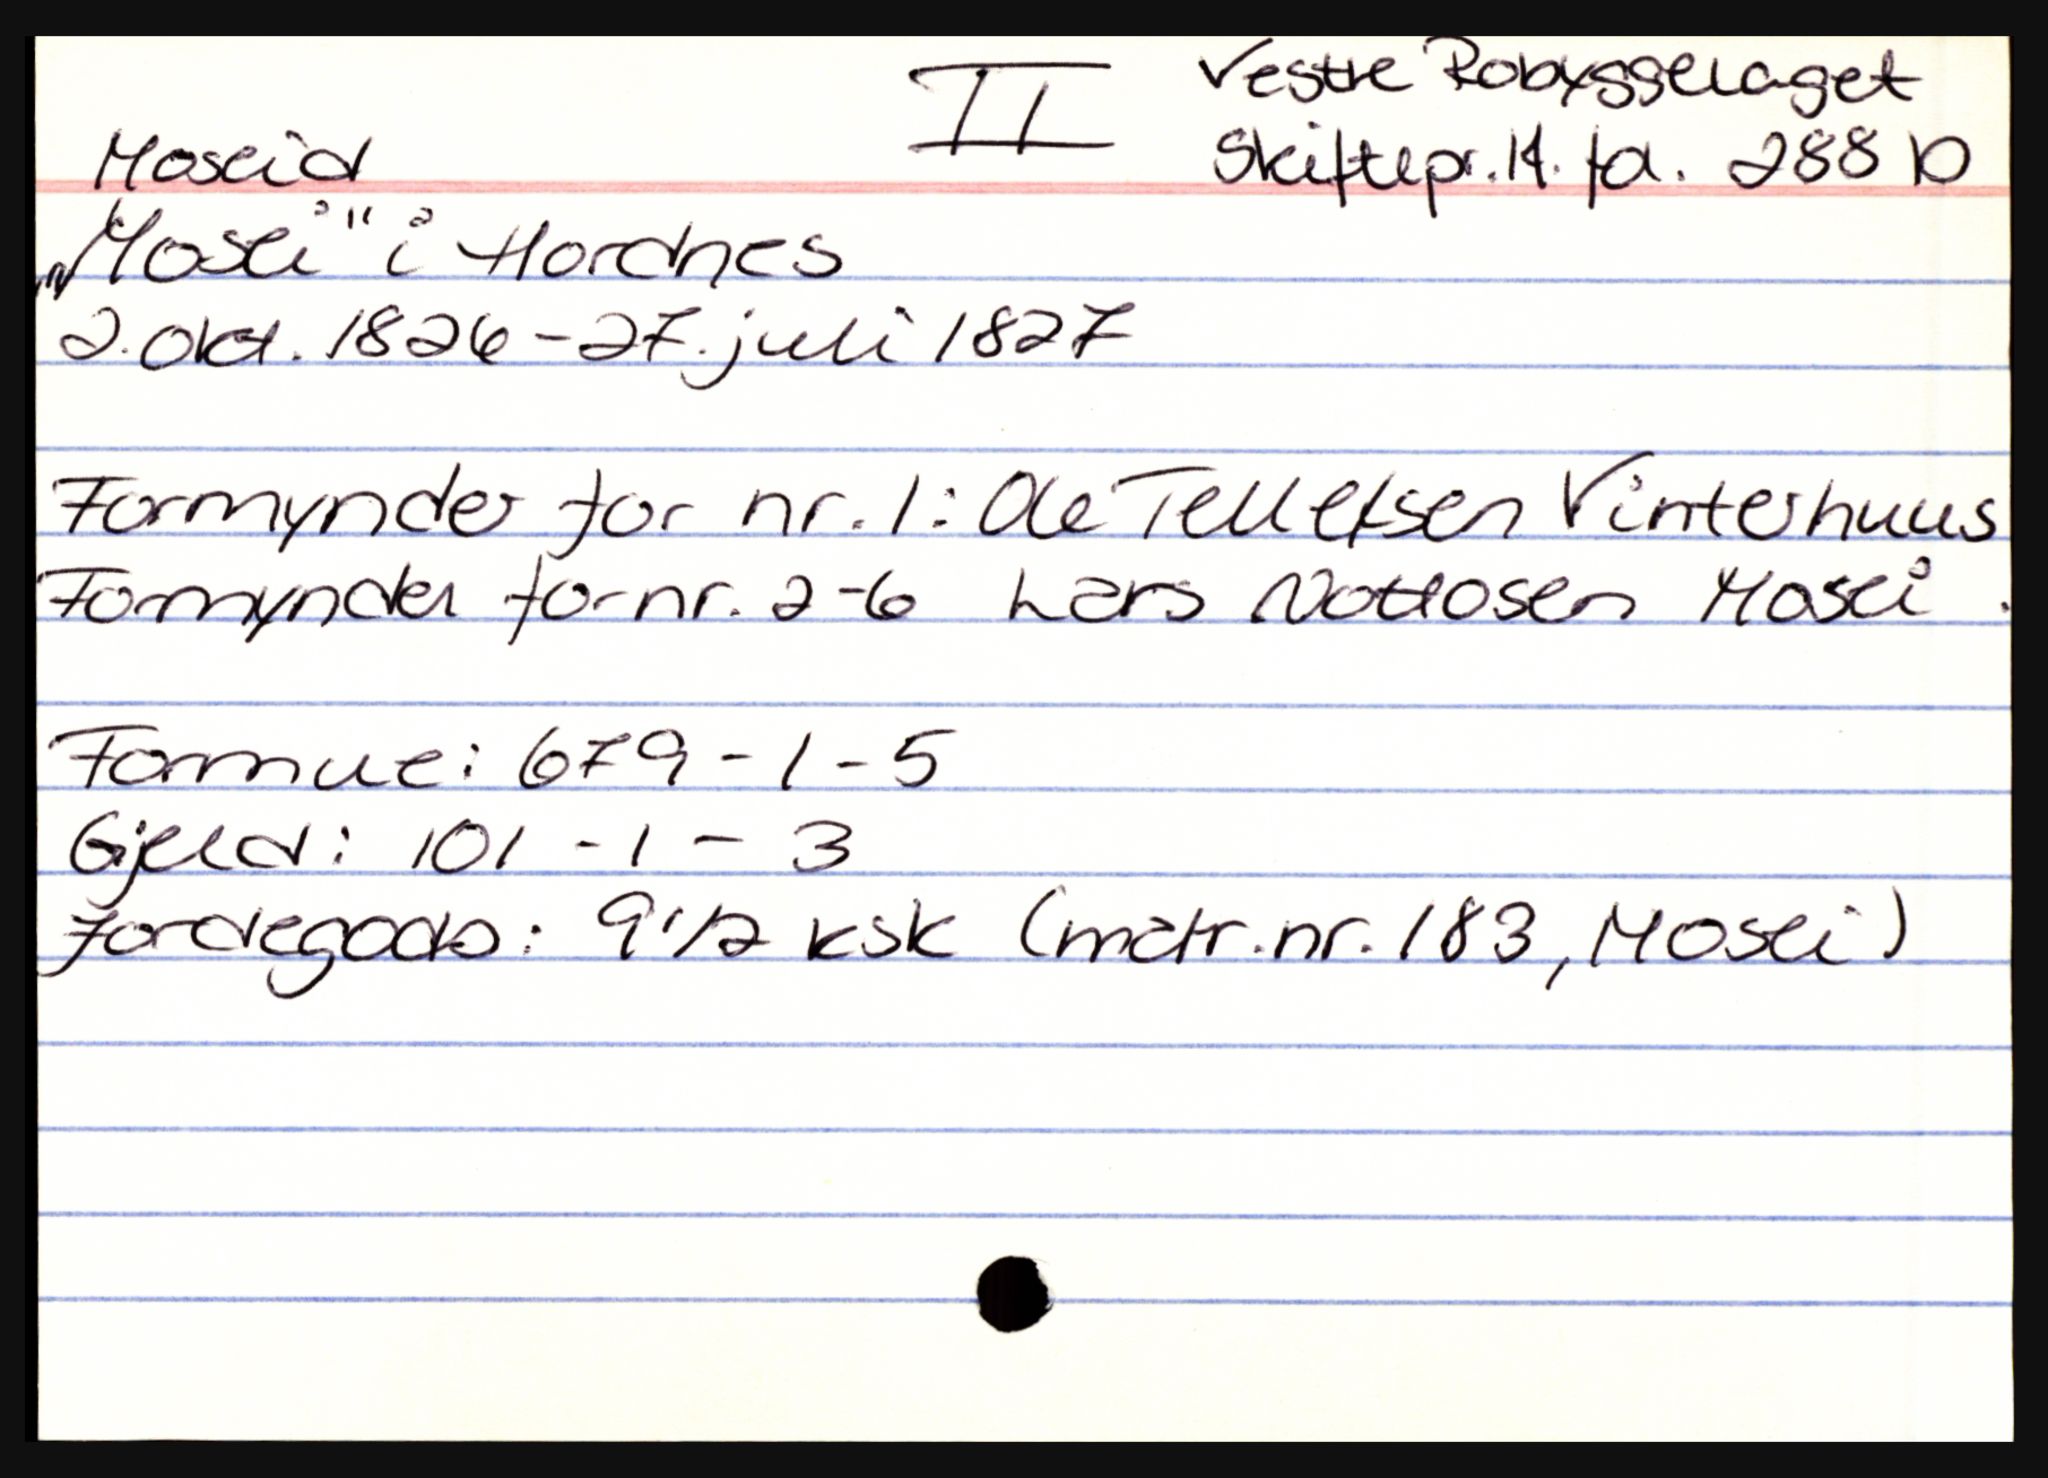 II
Vestre Robyggelaget
Skiftepr. 14. fol. 288 b
Moseid
"Mosei" i Hordnes
2. okt. 1826 - 27. juli 1827
Formynder for nr. 1: Ole Tellefsen Vinterhuus
Formynder for nr. 2-6 Lars Nottosen Mosei.
Formue: 679 - 1 - 5
Gjeld: 101 - 1 - 3
Jordegods: 9 1/2 ksk (matr.nr. 183, Mosei)